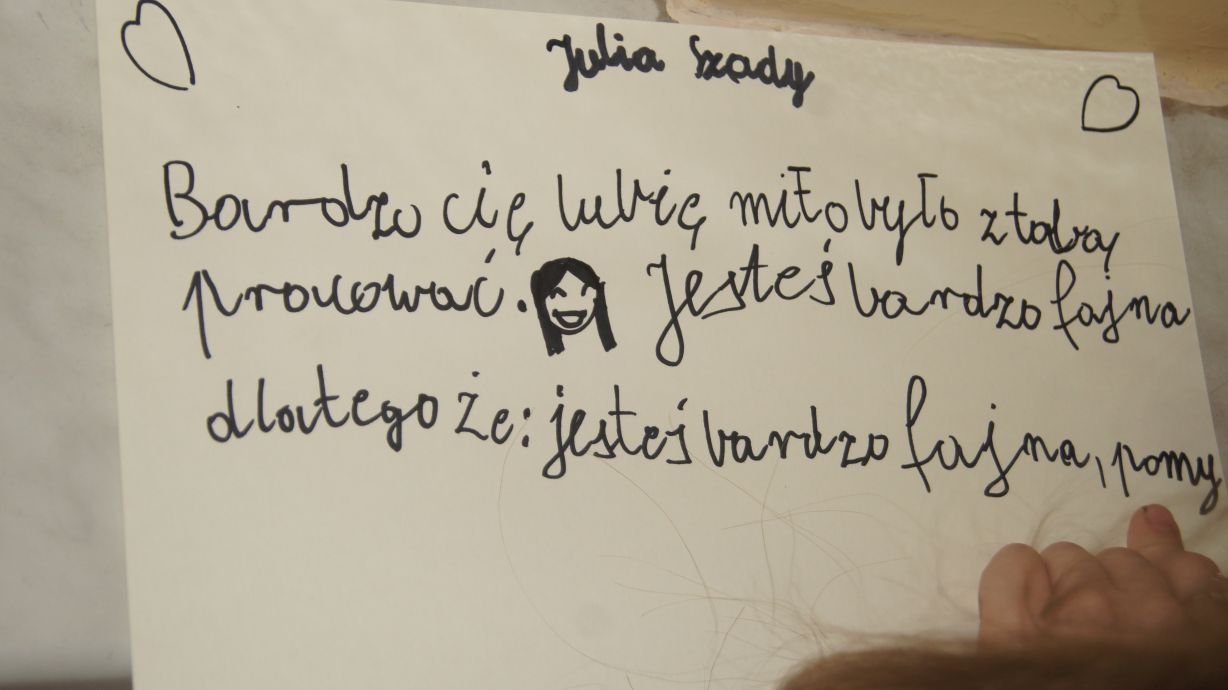 Julia Szady
Bardzo cię lubię miło było z tobą
pracować. Jesteś bardzo fajna
dlatego że: jesteś bardzo fajna, pomy